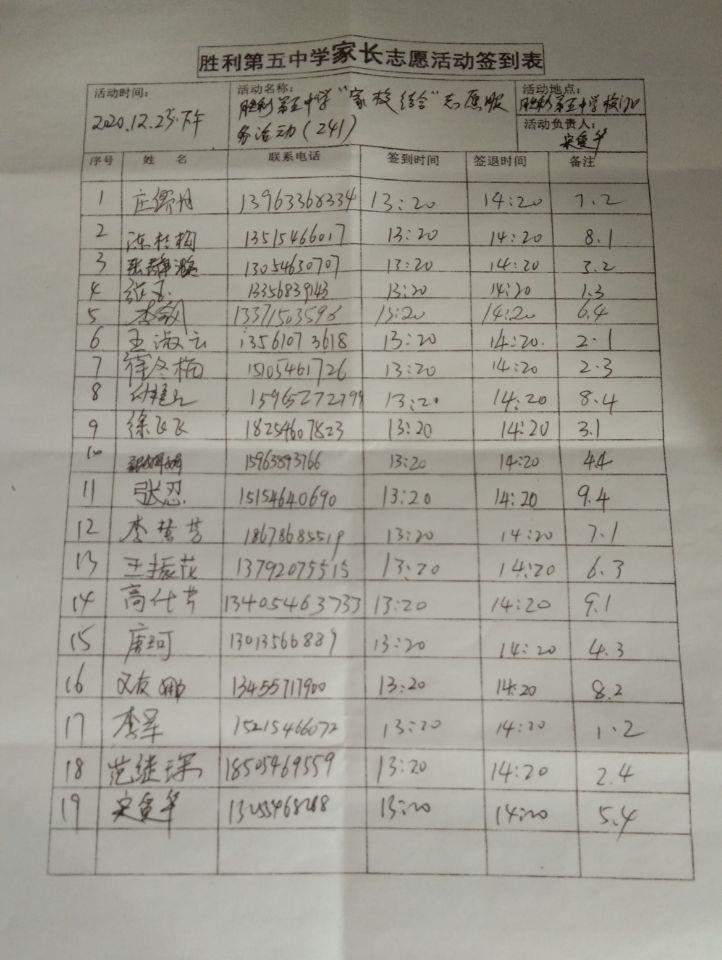 胜利第五中学家长志愿活动签到表
活动时间: 活动名称: 活动地点:
2020.12.25下午 胜利第五中学"家校结合"志愿服务活动(241) 胜利第五中学校门口
活动负责人:
序号 姓名 联系电话 签到时间 签退时间 备注
1 13963368334 13:20 14:20 7.2
2 陈桂梅 13515466017 13:20 14:20 8.1
3 张静 13054630707 13:20 14:20 3.2
4 张玉 13356839143 13:20 14:20 1.3
5 李敏 13371503596 13:20 14:20 6.4
6 王淑云 13561073618 13:20 14:20 2.1
7 徐冬梅 15105461726 13:20 14:20 2.3
8 15965272799 13:20 14:20 8.4
9 徐飞飞 18254607823 13:20 14:20 3.1
10 15963893766 13:20 14:20 4.4
11 张忍 15154640690 13:20 14:20 9.4
12 李梦芳 18678685519 13:20 14:20 7.1
13 王振花 13792075515 13:20 14:20 6.3
14 高仕芳 13405463733 13:20 14:20 9.1
15 唐珂 13013566889 13:20 14:20 4.3
16 13455717900 13:20 14:20 8.2
17 李军 15215466072 13:20 14:20 1.2
18 范继琛 18505469559 13:20 14:20 2.4
19 13:20 14:20 5.4